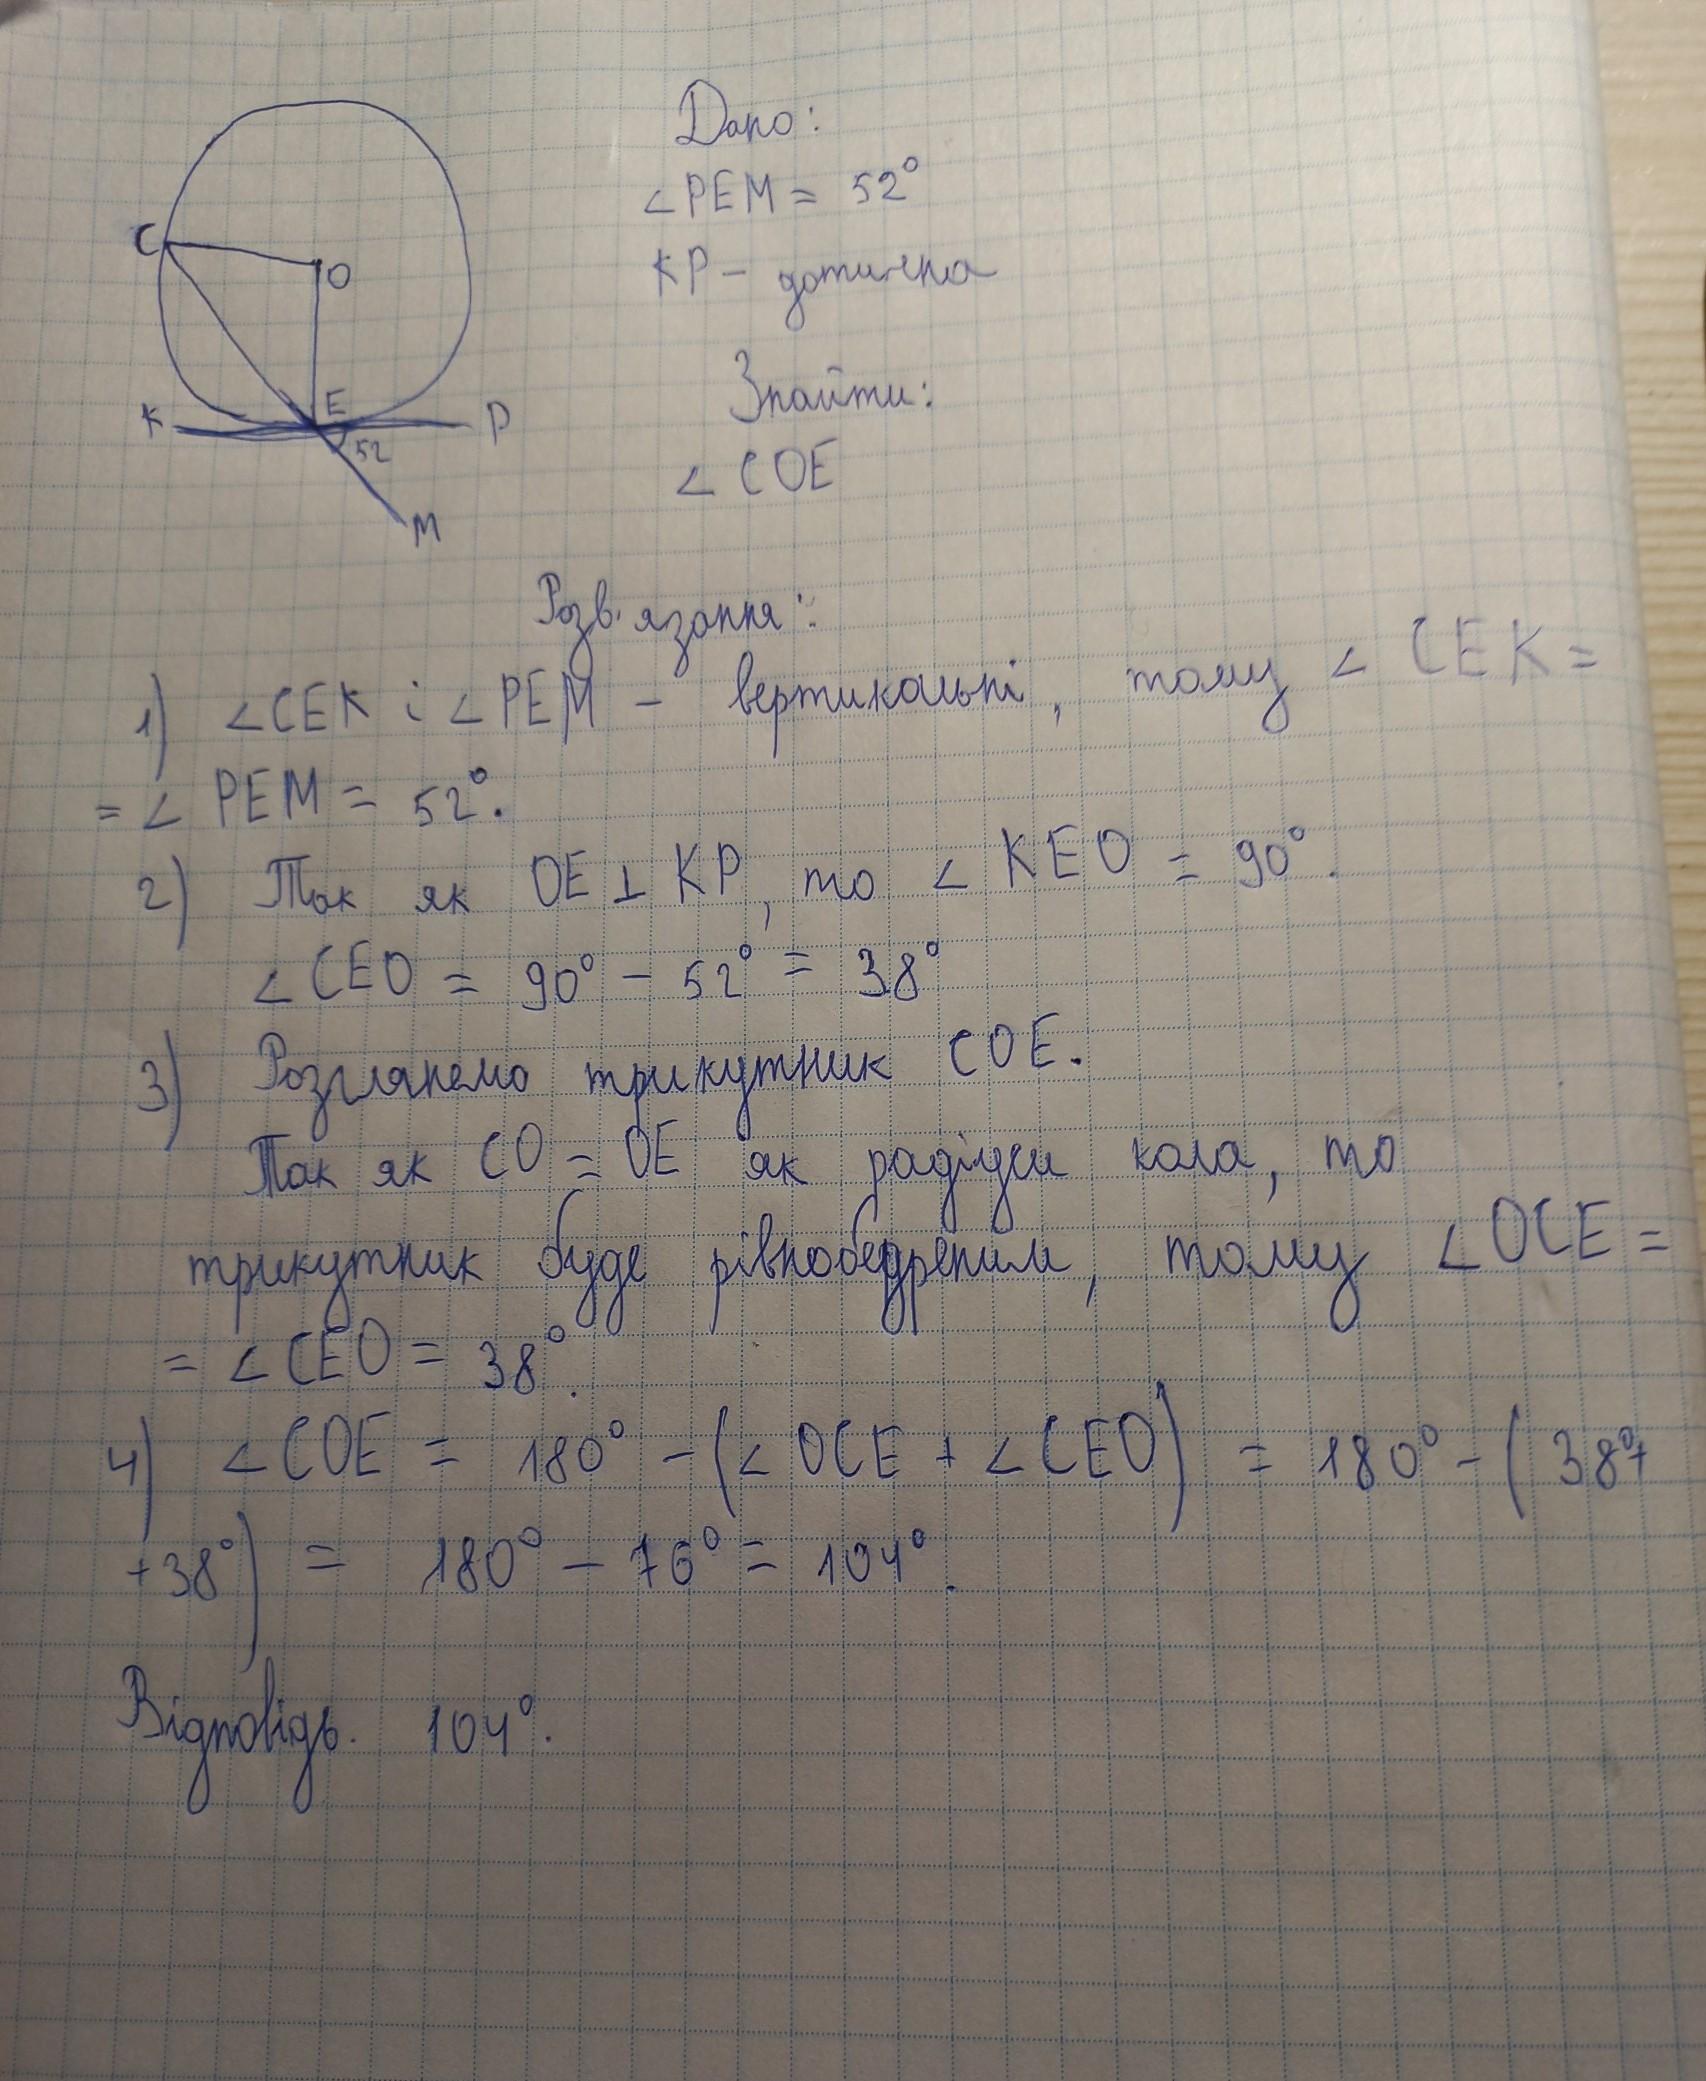 Дано:
∠PEM = 52°
KP – дотична
C
O
Знайти:
K
E
P
52
∠COE
M
Розв'язання:
1) ∠CEK і ∠PEM – вертикальні, тому ∠CEK =
= ∠PEM = 52°.
2) Так як OE ⊥ KP, то ∠KEO = 90°.
∠CEO = 90° – 52° = 38°
3) Розглянемо трикутник COE.
Так як CO = OE як радіуси кола, то
трикутник буде рівнобедреним, тому ∠OCE =
= ∠CEO = 38°.
4) ∠COE = 180° – (∠OCE + ∠CEO) = 180° – (38°+
+38°) = 180° – 76° = 104°.
Відповідь. 104°.